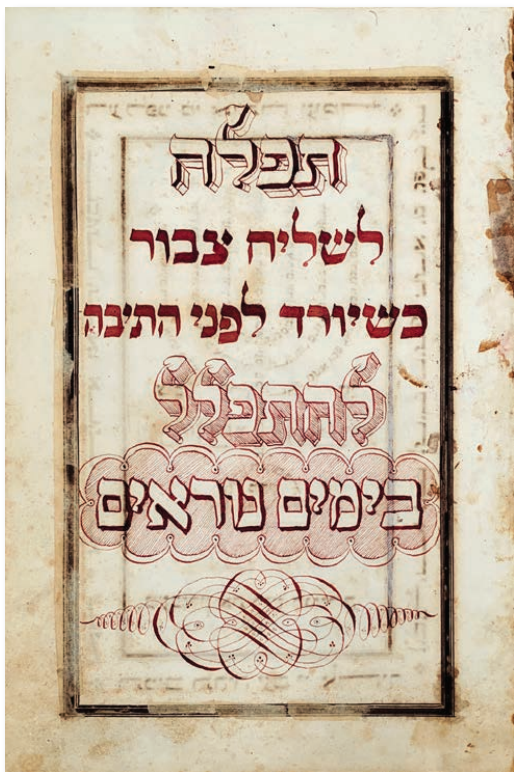 תפלה
לשליח צבור
כשיורד לפני התיבה
להתפלל
בימים נוראים